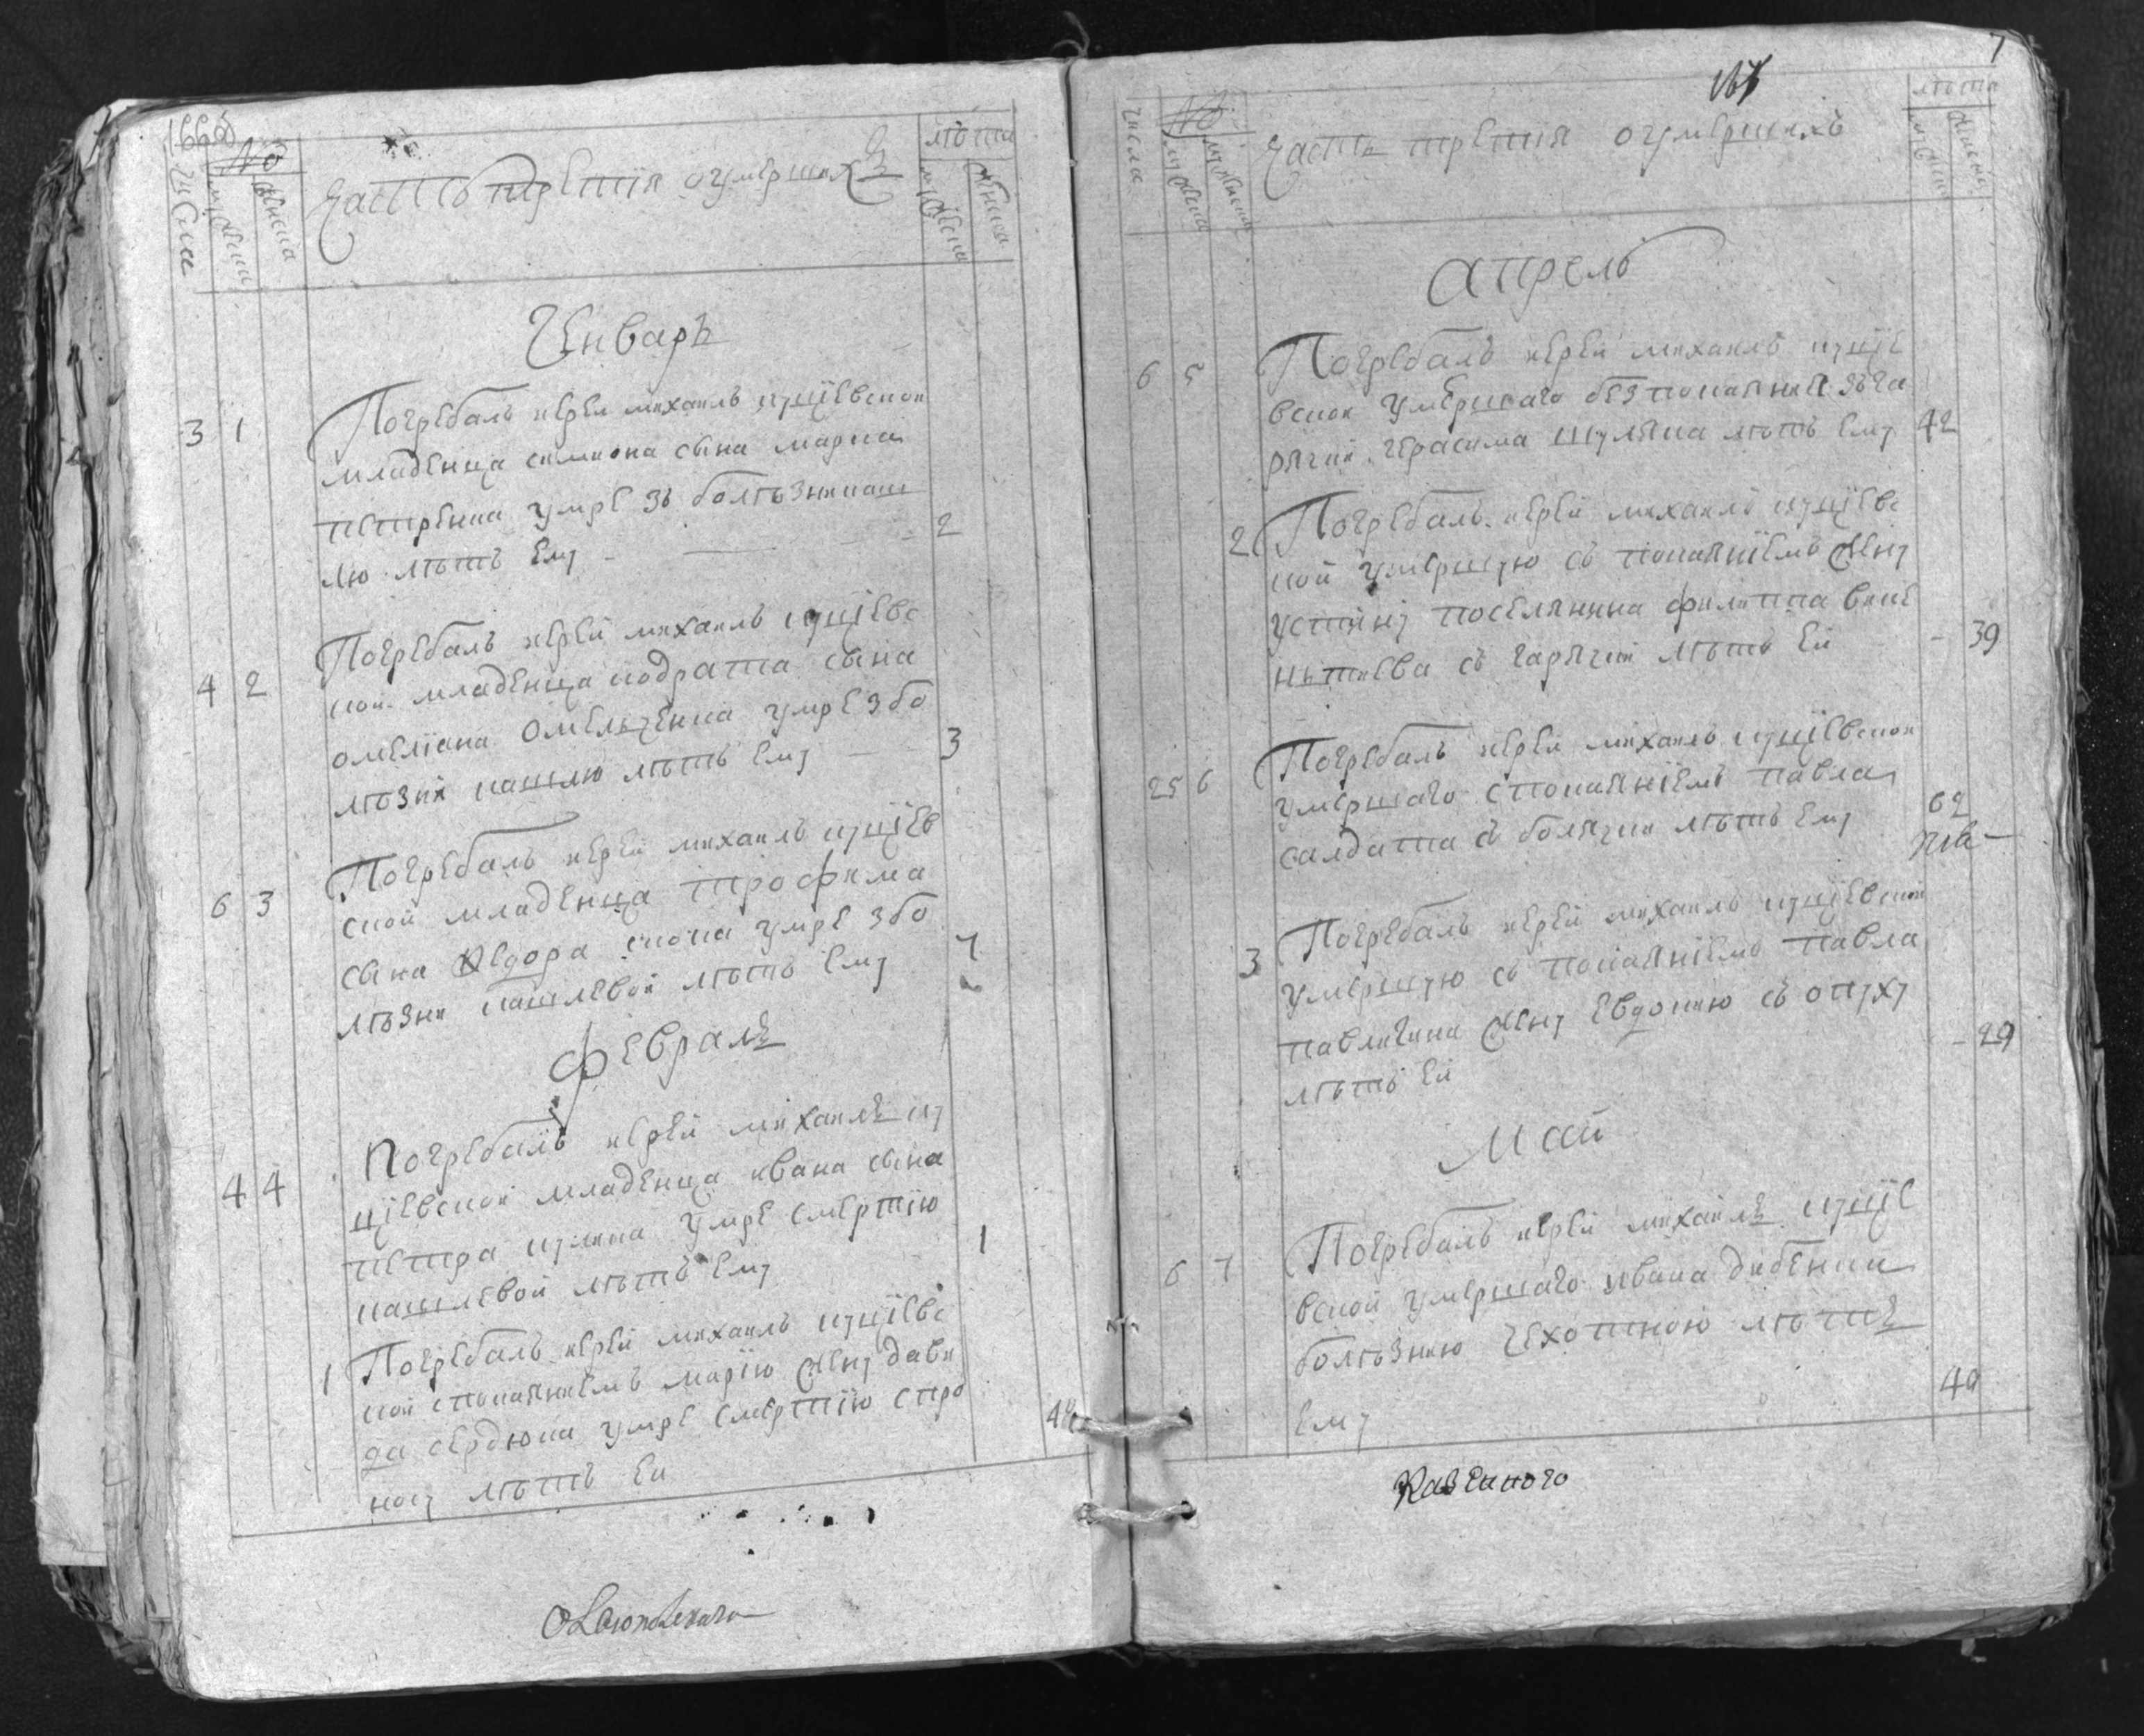 №
лѣта
числа
мужеска
женска
Часть третія оумершихъ
мужеска
женска
Генварь
3 1 Погребалъ иерей михаилъ куцѣевской
младенца симиона сына марка
петренка умре зъ болѣзни каш
лю лѣтъ ему 2
Погребалъ иерей михаилъ куцѣевс
4 2 кой младенца кодрата сына
омеляна омельченка умре з бо
лѣзни кашлю лѣтъ ему 3
Погребалъ иерей михаилъ куцѣев
6 3 ской младенца трофима
сына федора умре з бо
лѣзни кашлевой лѣтъ ему
февраль
Погребалъ иерей михаилъ ку
4 4 цѣевской младенца ивана сына
петра умре смертію
кашлевой лѣтъ ему 1
1 Погребалъ иерей михаилъ куцѣевс
кой с покаяниемъ марію жену дави
да сердюка умре смертію с про
носу лѣтъ ей
7
№
лѣта
числа
мужеска
женска
Часть третія оумершихъ
мужеска
женска
апрель
6 5 Погребалъ иерей михаилъ куцѣе
вской умершаго без покаянія зъ га
рячки герасима шуляка лѣтъ ему 42
2 Погребалъ иерей михаилъ куцѣевс
кой умершую съ покаяніемъ жену
устину поселянина филиппа
съ гарячки лѣтъ ей 39
Погребалъ иерей михаилъ куцѣевской
25 6 умершаго с покаяніемъ павла
салдата съ болячки лѣтъ ему 62
3 Погребалъ иерей михаилъ куцѣевской
умершую съ покаяніемъ павла
жену евдокию съ опуху
лѣтъ ей 29
Май
Погребалъ иерей михаилъ куцѣе
6 7 вской умершаго ивана
болѣзнию чехоткою лѣтъ
ему 40
Казенного